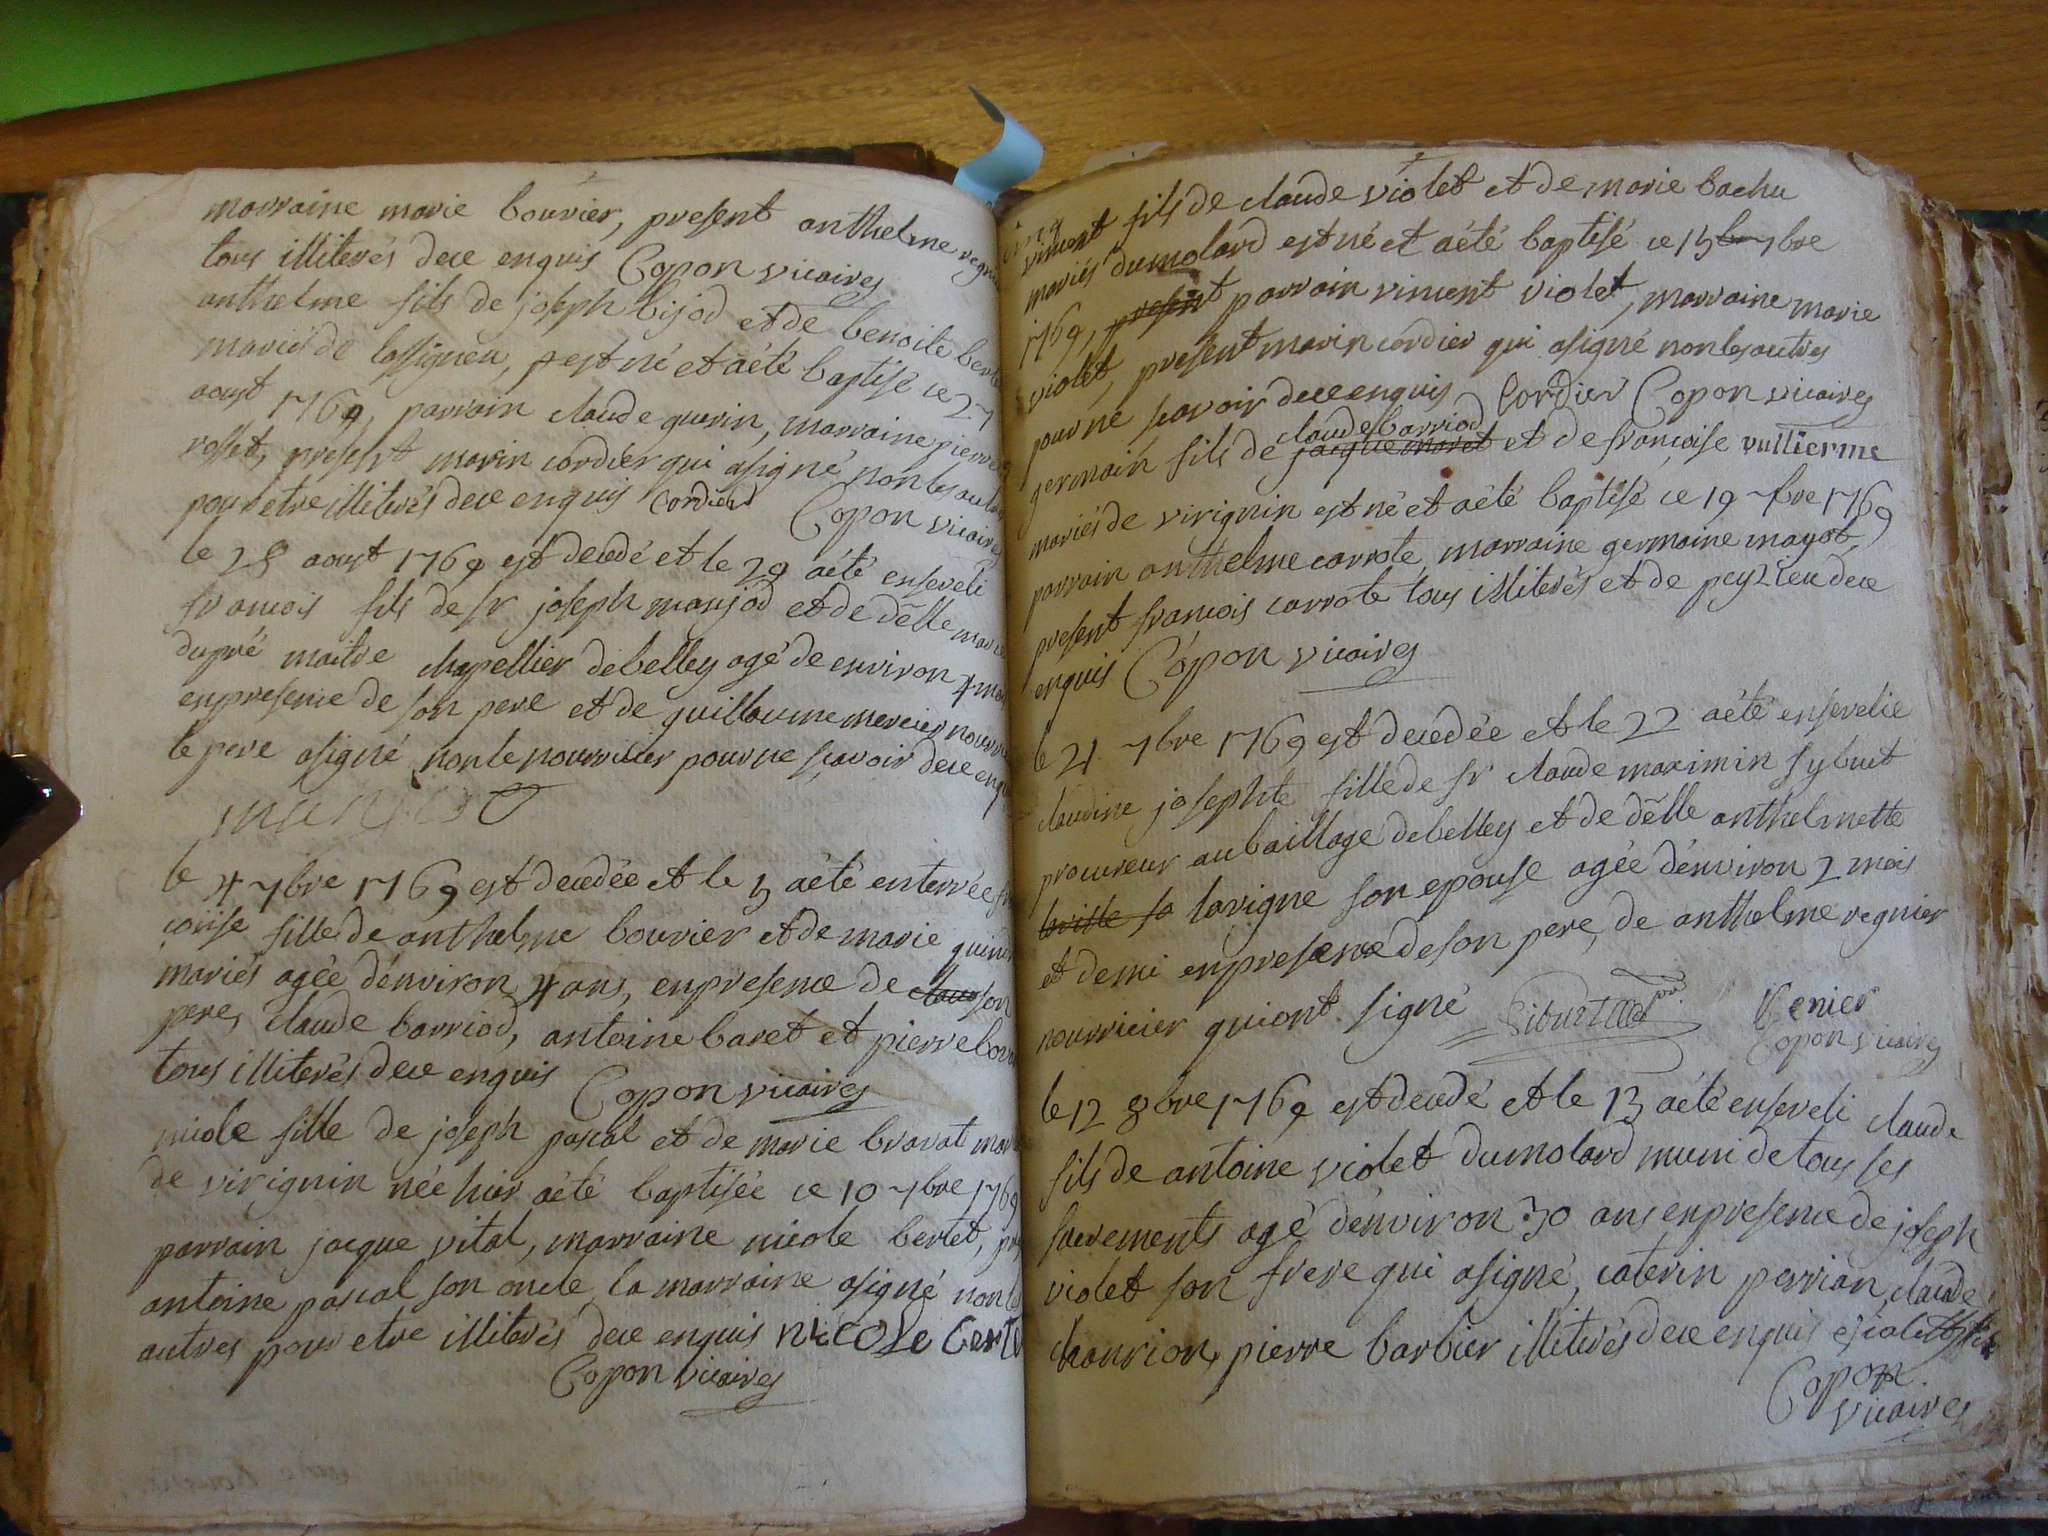 marraine marie bouvier, present anthelme
tous illiterés dece enquis Copon vicaires
anthelme fils de joseph bijod et de benoite
mariés de lassigneu, est né et a été baptisé ce 27
aoust 1769, parrain claude guerin, marraine pierre
rosset, present marin cordier qui a signé non les autres
pour etre illiterés dece enquis Cordier Copon vicaires
le 28 aoust 1769 est decedé et le 29 a été enseveli
francois fils de sr joseph manjod et de delle marie
dupré maitre chapellier de belley agé de environ 4 mois
en presence de son pere et de guillaume mercier
le pere a signé non le nourricier pour ne scavoir dece enquis
manjod
le 4 7bre 1769 est decedée et le 5 a été enterrée
coise fille de anthelme bouvier et de marie
mariés agée d'environ 4 ans, en presence de son
pere, claude barriod, antoine baret et pierre
tous illiterés dece enquis Copon vicaires
nicole fille de joseph pascal et de marie bravat
de virignin née hier a été baptisée ce 10 7bre 1769
parrain jacque vital, marraine nicole bertet,
antoine pascal son oncle la marraine a signé non les
autres pour etre illiterés dece enquis nicole bertet
Copon vicaires
vincent fils de claude violet et de marie bachu
mariés du molard est né et a été baptisé ce 15 7bre
1769, present parrain vincent violet, marraine marie
violet, present marin cordier qui a signé non les autres
pour ne scavoir dece enquis Cordier Copon vicaires
claude barriod
germain fils de jacque moret et de francoise vullierme
mariés de virignin est né et a été baptisé ce 19 7bre 1769
parrain anthelme carrote, marraine germaine mayot,
present francois carrote tous illiterés et de peyzieu dece
enquis Copon vicaires
le 21 7bre 1769 est decedée et le 22 a été ensevelie
claudine josephte fille de sr claude maximin sybuet
procureur au baillage de belley et de delle anthelmette
lavigne son epouse agée d'environ 2 mois
et demi en presence de son pere, de anthelme regnier
nourricier qui ont signé Sibuet Renier
Copon vicaires
le 12 8bre 1769 est decedé et le 13 a été enseveli claude
fils de antoine violet du molard muni de tous ses
sacrements agé d'environ 30 ans en presence de joseph
violet son frere qui a signé, caterin perrian, claude
chaurion, pierre barbier illiterés dece enquis violet
Copon
vicaires